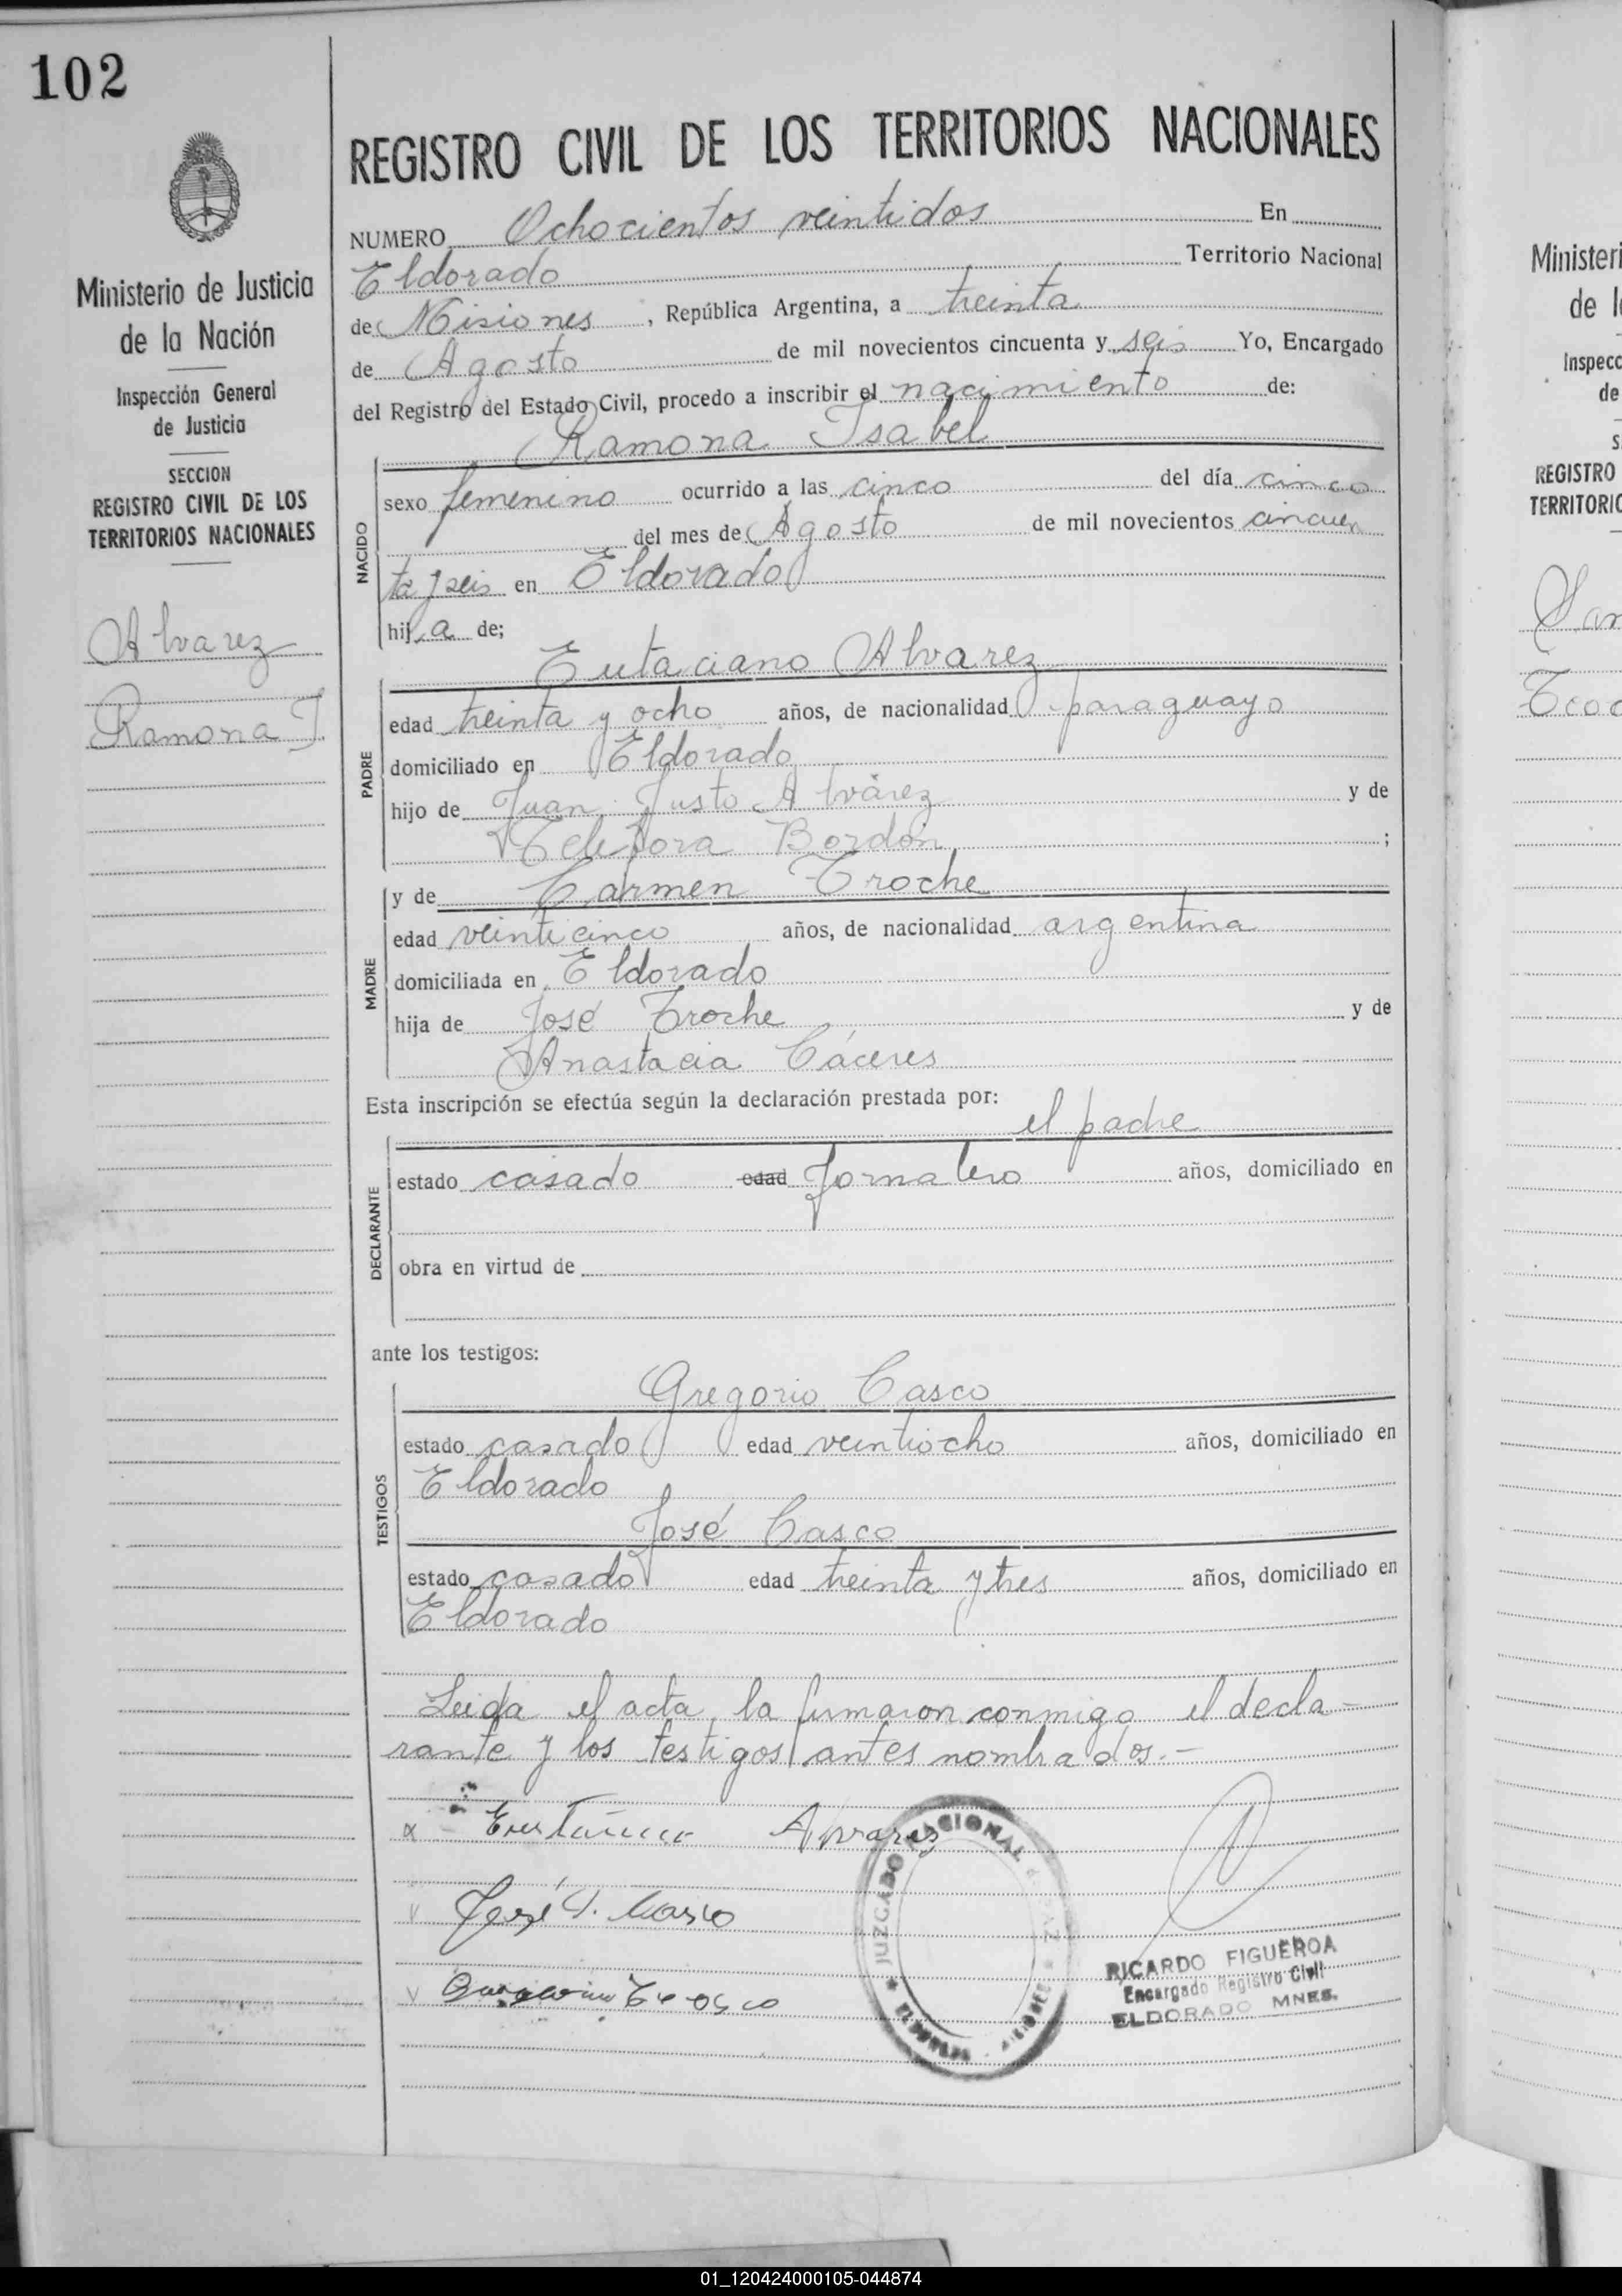 102
Ministerio de Justicia
de la Nación
Inspección General
de Justicia
SECCION
REGISTRO CIVIL DE LOS
TERRITORIOS NACIONALES
Alvarez
Ramona I.
REGISTRO CIVIL DE LOS TERRITORIOS NACIONALES
NUMERO Ochocientos veintidos En
Eldorado Territorio Nacional
de Misiones, República Argentina, a treinta
de Agosto de mil novecientos cincuenta y seis Yo, Encargado
del Registro del Estado Civil, procedo a inscribir el nacimiento de:
Ramona Isabel
NACIDO
sexo femenino ocurrido a las cinco del día cinco
del mes de Agosto de mil novecientos cincuen
ta y seis en Eldorado
hija de;
PADRE
Eutaciano Alvarez
edad treinta y ocho años, de nacionalidad paraguayo
domiciliado en Eldorado
hijo de Juan Justo Alvárez y de
Telefora Bordón ;
MADRE
y de Carmen Troche
edad veinticinco años, de nacionalidad argentina
domiciliada en Eldorado
hija de José Troche y de
Anastacia Cáceres
Esta inscripción se efectúa según la declaración prestada por:
el padre
DECLARANTE
estado casado edad Jornalero años, domiciliado en
obra en virtud de
ante los testigos:
TESTIGOS
Gregorio Casco
estado casado edad veintiocho años, domiciliado en
Eldorado
José Casco
estado casado edad treinta y tres años, domiciliado en
Eldorado
Leida el acta, la firmaron conmigo el decla-
rante y los testigos antes nombrados.-
Alvares
José
JUZGADO NACIONAL DE PAZ
ELDORADO - MISIONES
RICARDO FIGUEROA
Encargado Registro Civil
ELDORADO MNES.
Ministeri
de l
Inspecc
de
S
REGISTRO
TERRITORIO
01_120424000105-044874